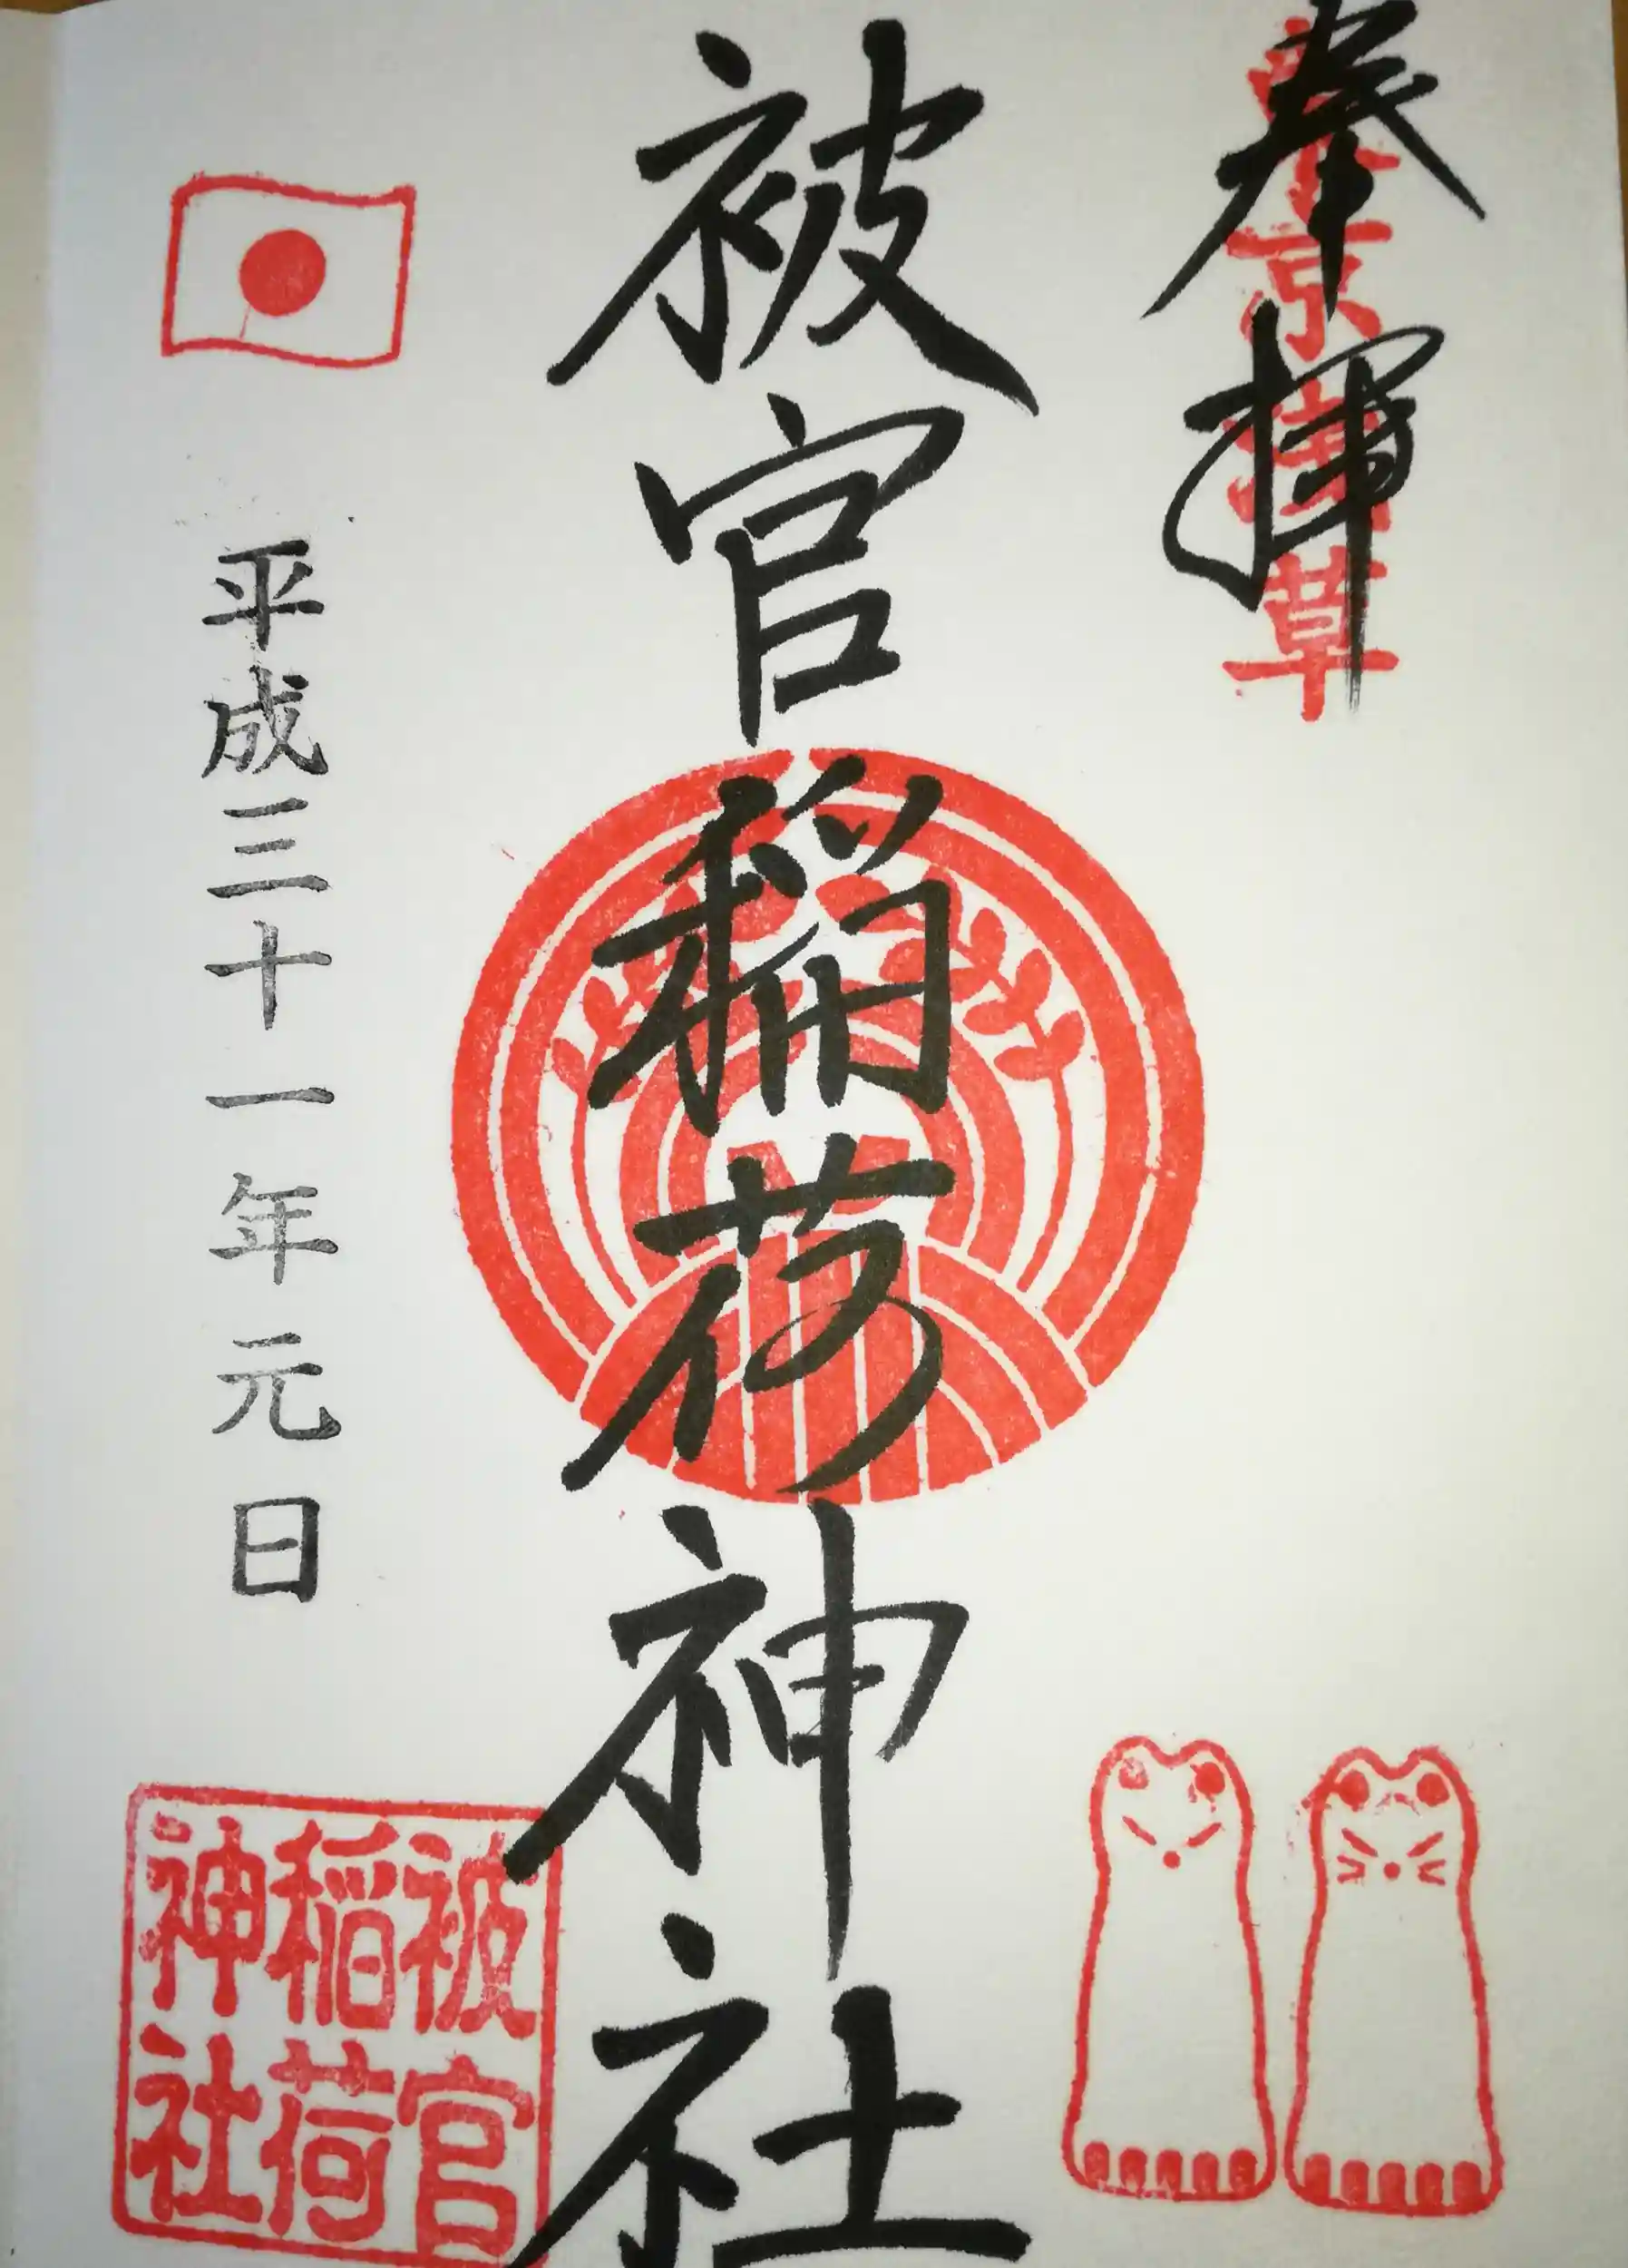 奉拝
東京浅草
被官稲荷神社
平成三十一年元日
被官
稲荷
神社